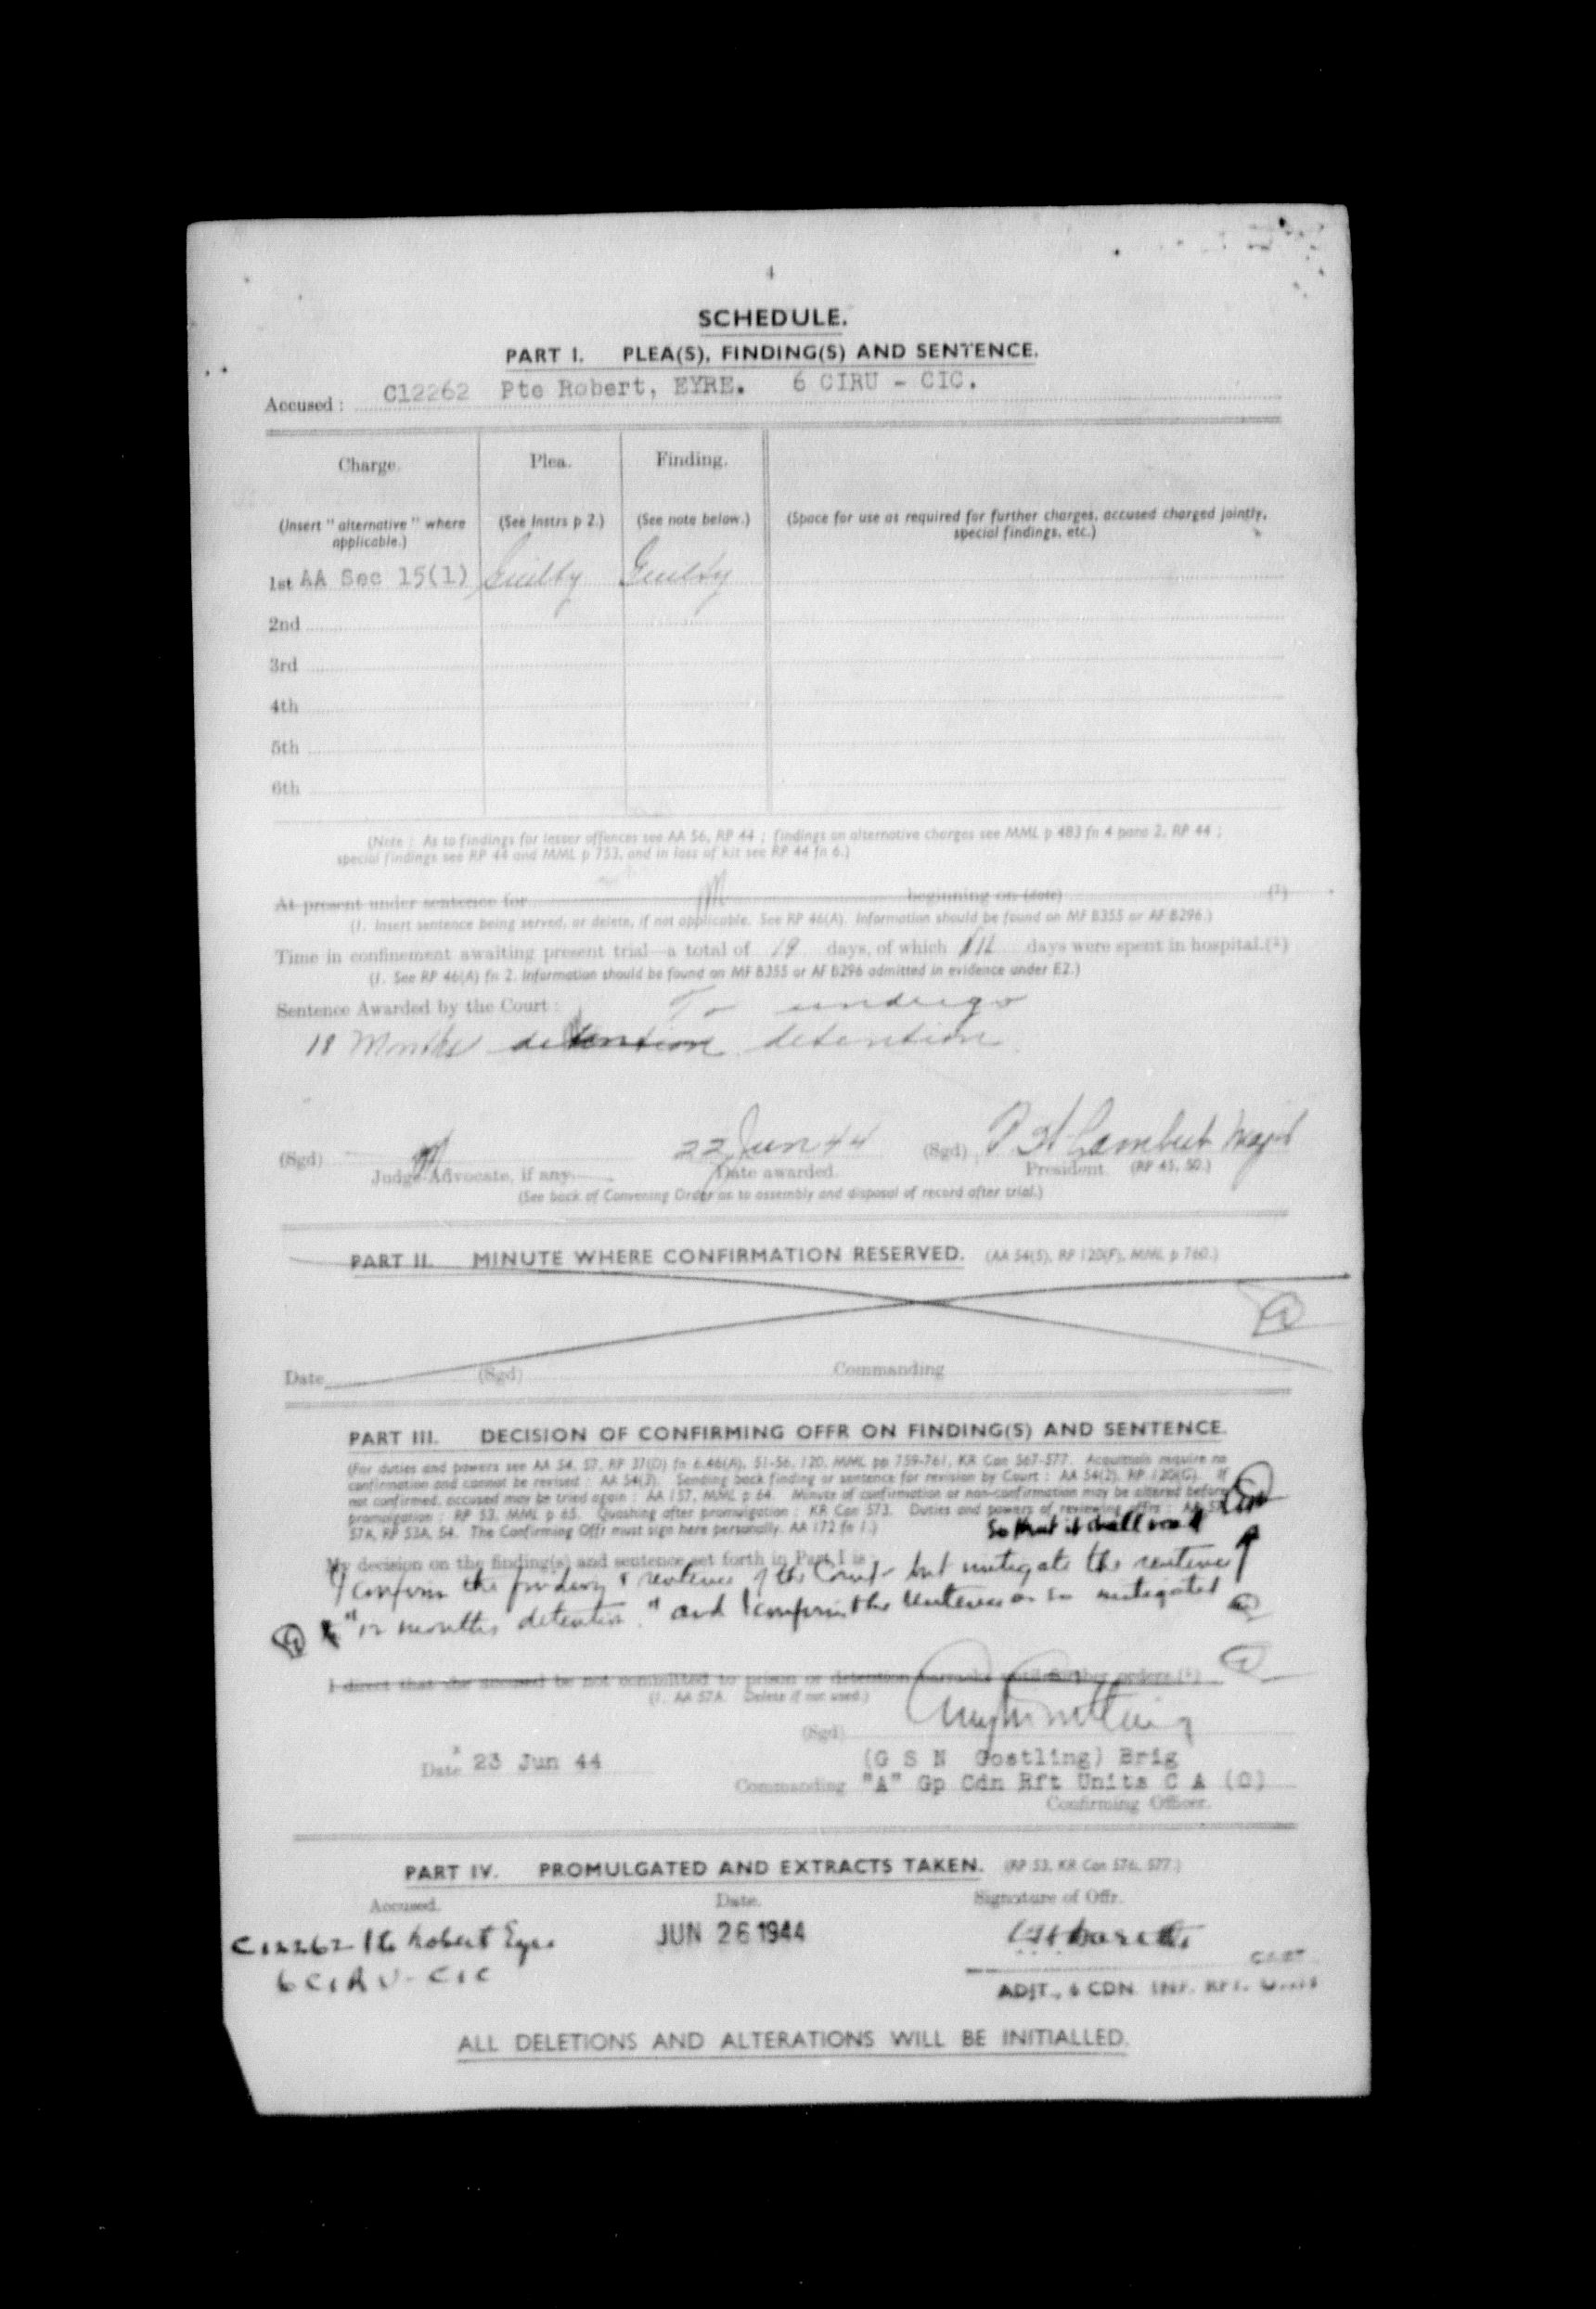 4
SCHEDULE.
PART I. PLEA(S), FINDING(S) AND SENTENCE.
Accused : C12262 Pte Robert, EYRE. 6 CIRU - CIC.
Charge. Plea. Finding.
(Insert " alternative " where applicable.) (See Instrs p 2.) (See note below.) (Space for use as required for further charges, accused charged jointly, special findings, etc.)
1st AA Sec 15(1) Guilty Guilty
2nd
3rd
4th
5th
6th
(Note : As to findings for lesser offences see AA 56, RP 44 ; findings on alternative charges see MML p 483 fn 4 para 2, RP 44 ;
special findings see RP 44 and MML p 753, and in loss of kit see RP 44 fn 6.)
At present under sentence for beginning on (date) (1)
(1. Insert sentence being served, or delete, if not applicable. See RP 46(A). Information should be found on MF B355 or AF B296.)
Time in confinement awaiting present trial—a total of 19 days, of which days were spent in hospital.(1)
(1. See RP 46(A) fn 2. Information should be found on MF B355 or AF B296 admitted in evidence under E2.)
Sentence Awarded by the Court : To undergo
18 Months detention detention
(Sgd) 22 Jun 44 (Sgd) P H Lambert Major
Judge-Advocate, if any. Date awarded. President. (RP 45, 50.)
(See back of Convening Order as to assembly and disposal of record after trial.)
PART II. MINUTE WHERE CONFIRMATION RESERVED. (AA 54(5), RP 120(F), MML p 760.)
Date (Sgd) Commanding
PART III. DECISION OF CONFIRMING OFFR ON FINDING(S) AND SENTENCE.
(For duties and powers see AA 54, 57, RP 37(D) fn 6,46(A), 51-56, 120, MML pp 759-761, KR Can 567-577. Acquittals require no
confirmation and cannot be revised : AA 54(3). Sending back finding or sentence for revision by Court : AA 54(2), RP 120(G). If
not confirmed, accused may be tried again : AA 157, MML p 64. Minute of confirmation or non-confirmation may be altered before
promulgation : RP 53, MML p 65. Quashing after promulgation : KR Can 573. Duties and powers of reviewing offrs : AA 57,
57A, RP 53A, 54. The Confirming Offr must sign here personally. AA 172 fn 1.)
so that it shall read
My decision on the finding(s) and sentence set forth in Part I is :
I confirm the finding & sentence of the Court but mitigate the sentence
"12 months detention." and I confirm the sentence as so mitigated
I direct that the accused be not committed to prison or detention barracks until further orders.(1)
(1. AA 57A. Delete if not used.)
(Sgd)
Date 23 Jun 44 (G S N Gostling) Brig
Commanding "A" Gp Cdn Rft Units C A (O)
Confirming Officer.
PART IV. PROMULGATED AND EXTRACTS TAKEN. (RP 53, KR Can 576, 577.)
Accused. Date. Signature of Offr.
C12262 Pte Robert Eyre JUN 26 1944
6 CIRU - CIC
CAPT
ADJT., 6 CDN. INF. RFT. UNIT
ALL DELETIONS AND ALTERATIONS WILL BE INITIALLED.